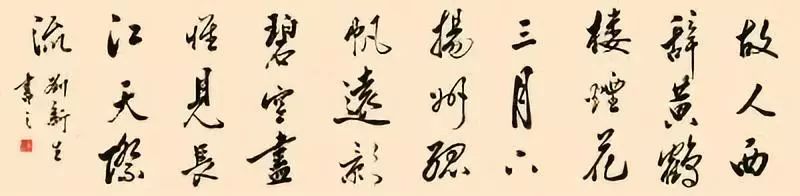 故人西
辭黄鶴
樓煙花
三月下
揚州孤
帆遠影
碧空盡
惟見長
江天際
流
劉新生
書之